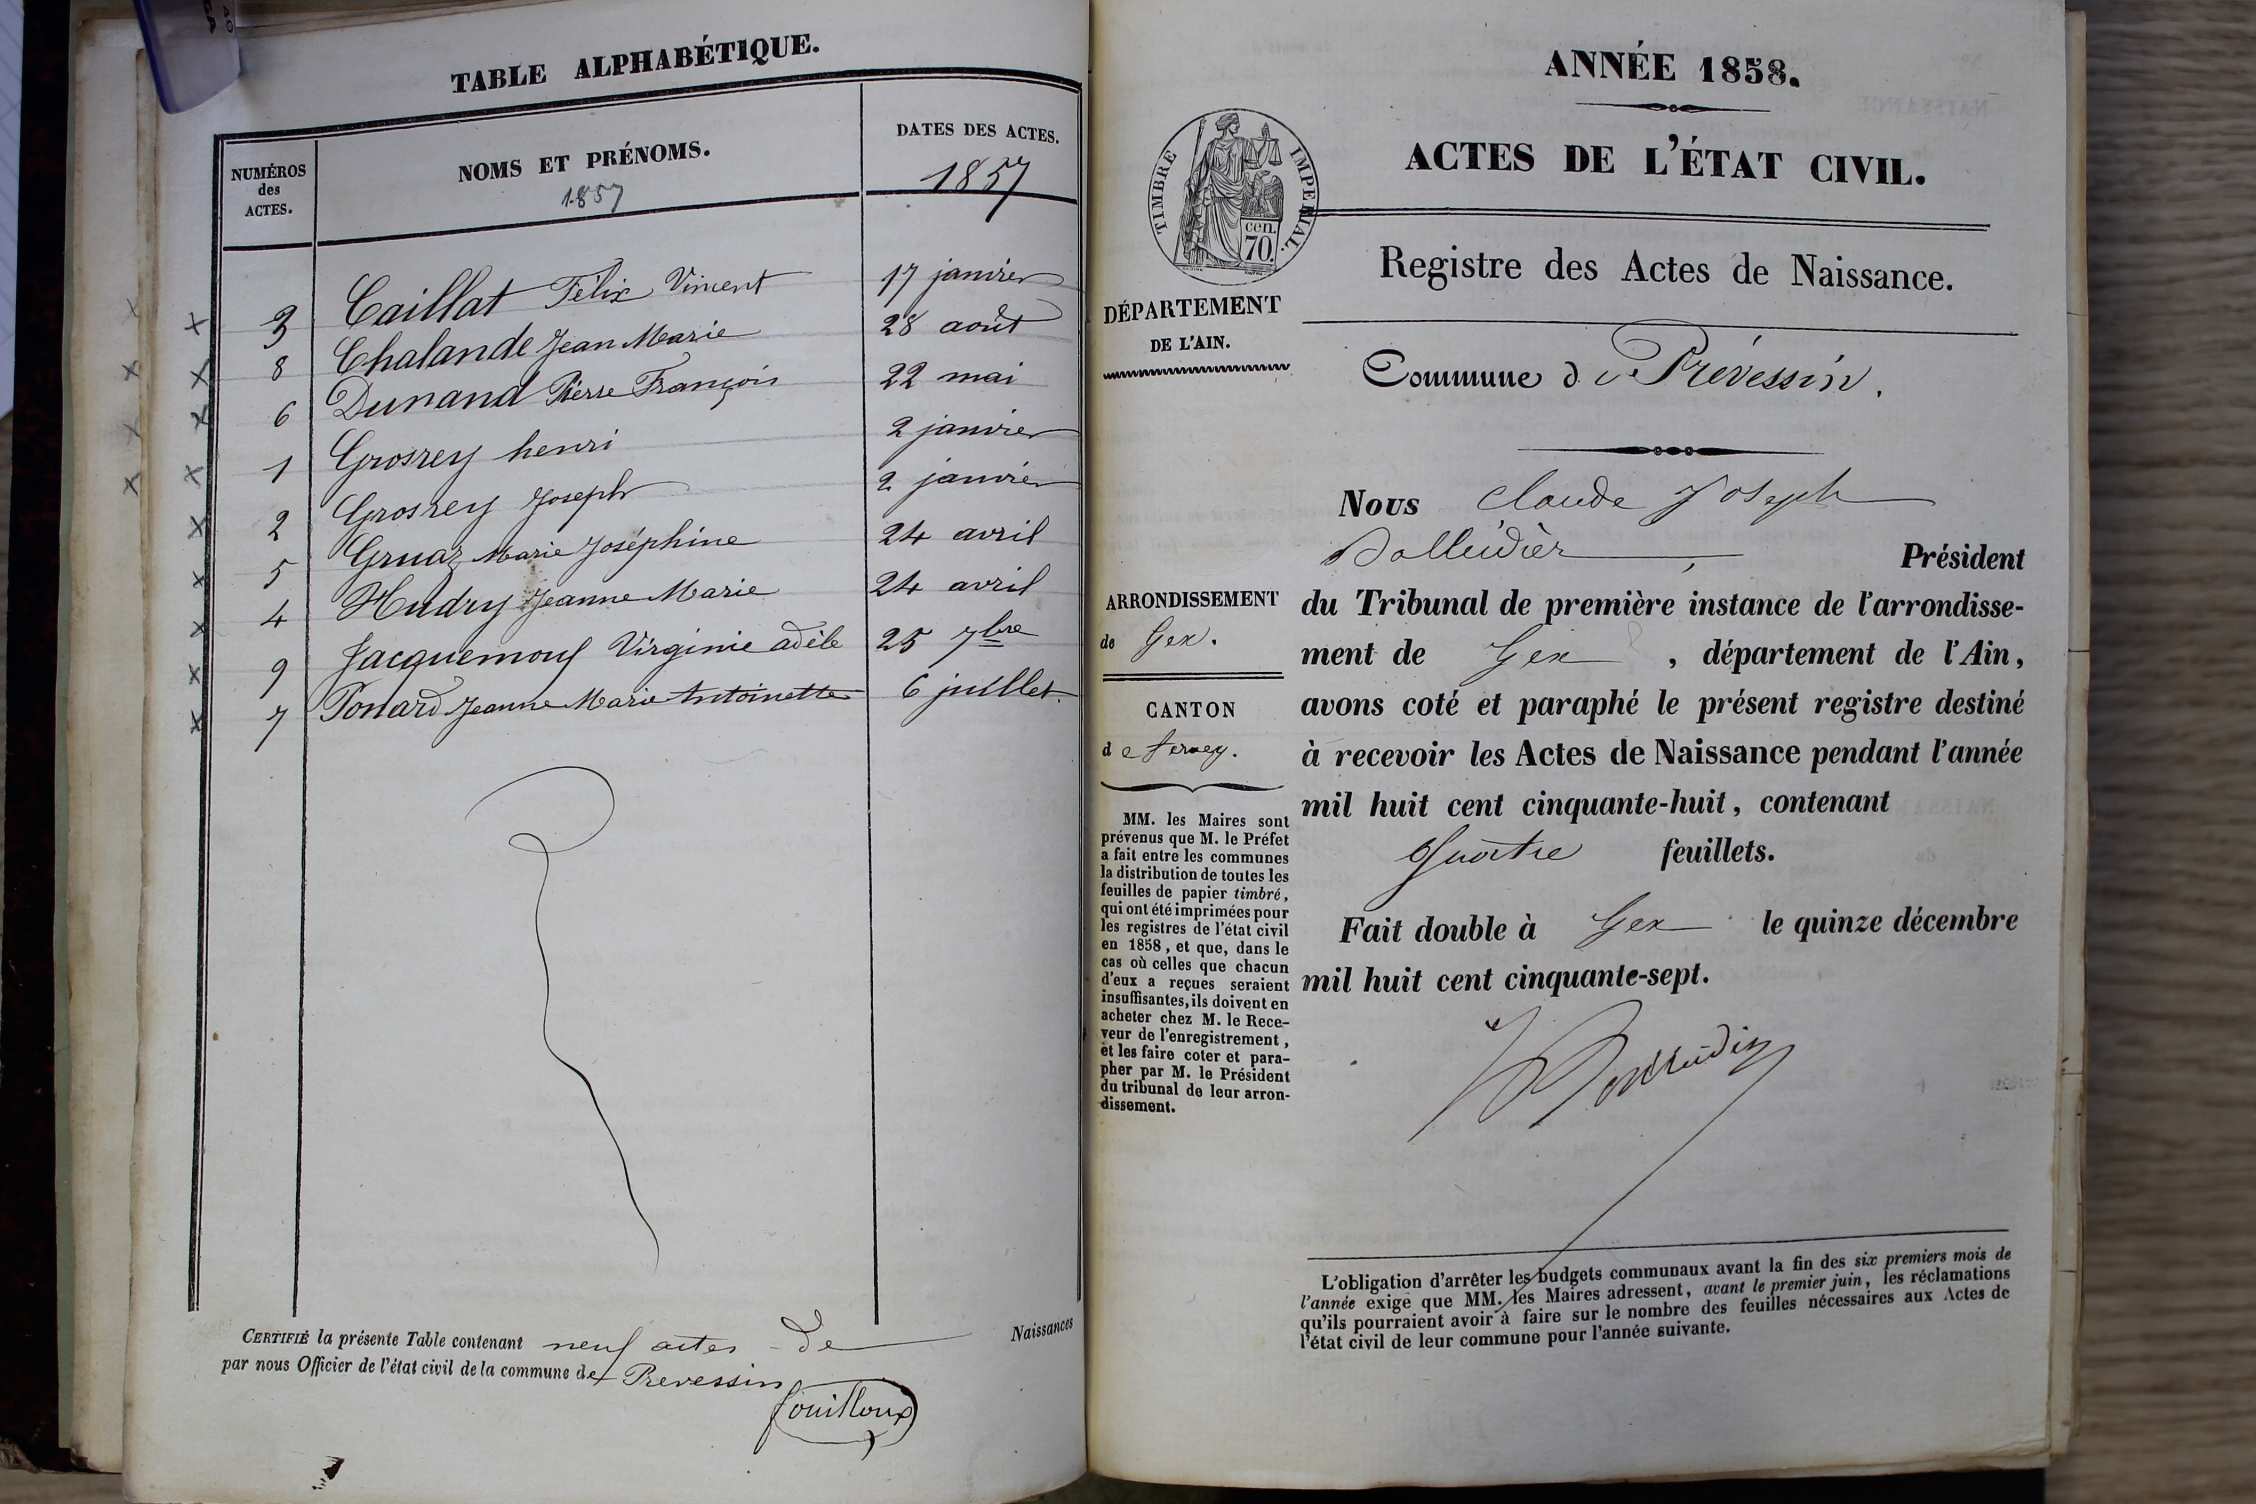 TABLE ALPHABÉTIQUE.
NUMÉROS
des
ACTES.
NOMS ET PRÉNOMS.
1857
DATES DES ACTES.
1857
3 Caillat Félix Vincent 17 janvier
8 Chalande Jean Marie 28 août
6 Dunand Pierre François 22 mai
1 Grosrey henri 2 janvier
2 Grosrey Joseph 2 janvier
5 Gruaz Marie Joséphine 24 avril
4 Hudry Jeanne Marie 24 avril
9 Jacquemouf Virginie adèle 25 7bre
7 Ponard Jeanne Marie Antoinette 6 juillet.
CERTIFIÉ la présente Table contenant neuf actes de Naissances
par nous Officier de l'état civil de la commune de Prevessin
fouilloux
ANNÉE 1858.
ACTES DE L'ÉTAT CIVIL.
TIMBRE IMPERIAL.
cen.
70.
Registre des Actes de Naissance.
DÉPARTEMENT
DE L'AIN.
Commune de Prévessin.
Nous Claude Joseph
Président
du Tribunal de première instance de l'arrondisse-
ment de Gex, département de l'Ain,
avons coté et paraphé le présent registre destiné
à recevoir les Actes de Naissance pendant l'année
mil huit cent cinquante-huit, contenant
Quatre feuillets.
Fait double à Gex le quinze décembre
mil huit cent cinquante-sept.
ARRONDISSEMENT
de Gex.
CANTON
de ferney.
MM. les Maires sont
prévenus que M. le Préfet
a fait entre les communes
la distribution de toutes les
feuilles de papier timbré,
qui ont été imprimées pour
les registres de l'état civil
en 1858, et que, dans le
cas où celles que chacun
d'eux a reçues seraient
insuffisantes, ils doivent en
acheter chez M. le Rece-
veur de l'enregistrement,
et les faire coter et para-
pher par M. le Président
du tribunal de leur arron-
dissement.
L'obligation d'arrêter les budgets communaux avant la fin des six premiers mois de
l'année exige que MM. les Maires adressent, avant le premier juin, les réclamations
qu'ils pourraient avoir à faire sur le nombre des feuilles nécessaires aux Actes de
l'état civil de leur commune pour l'année suivante.